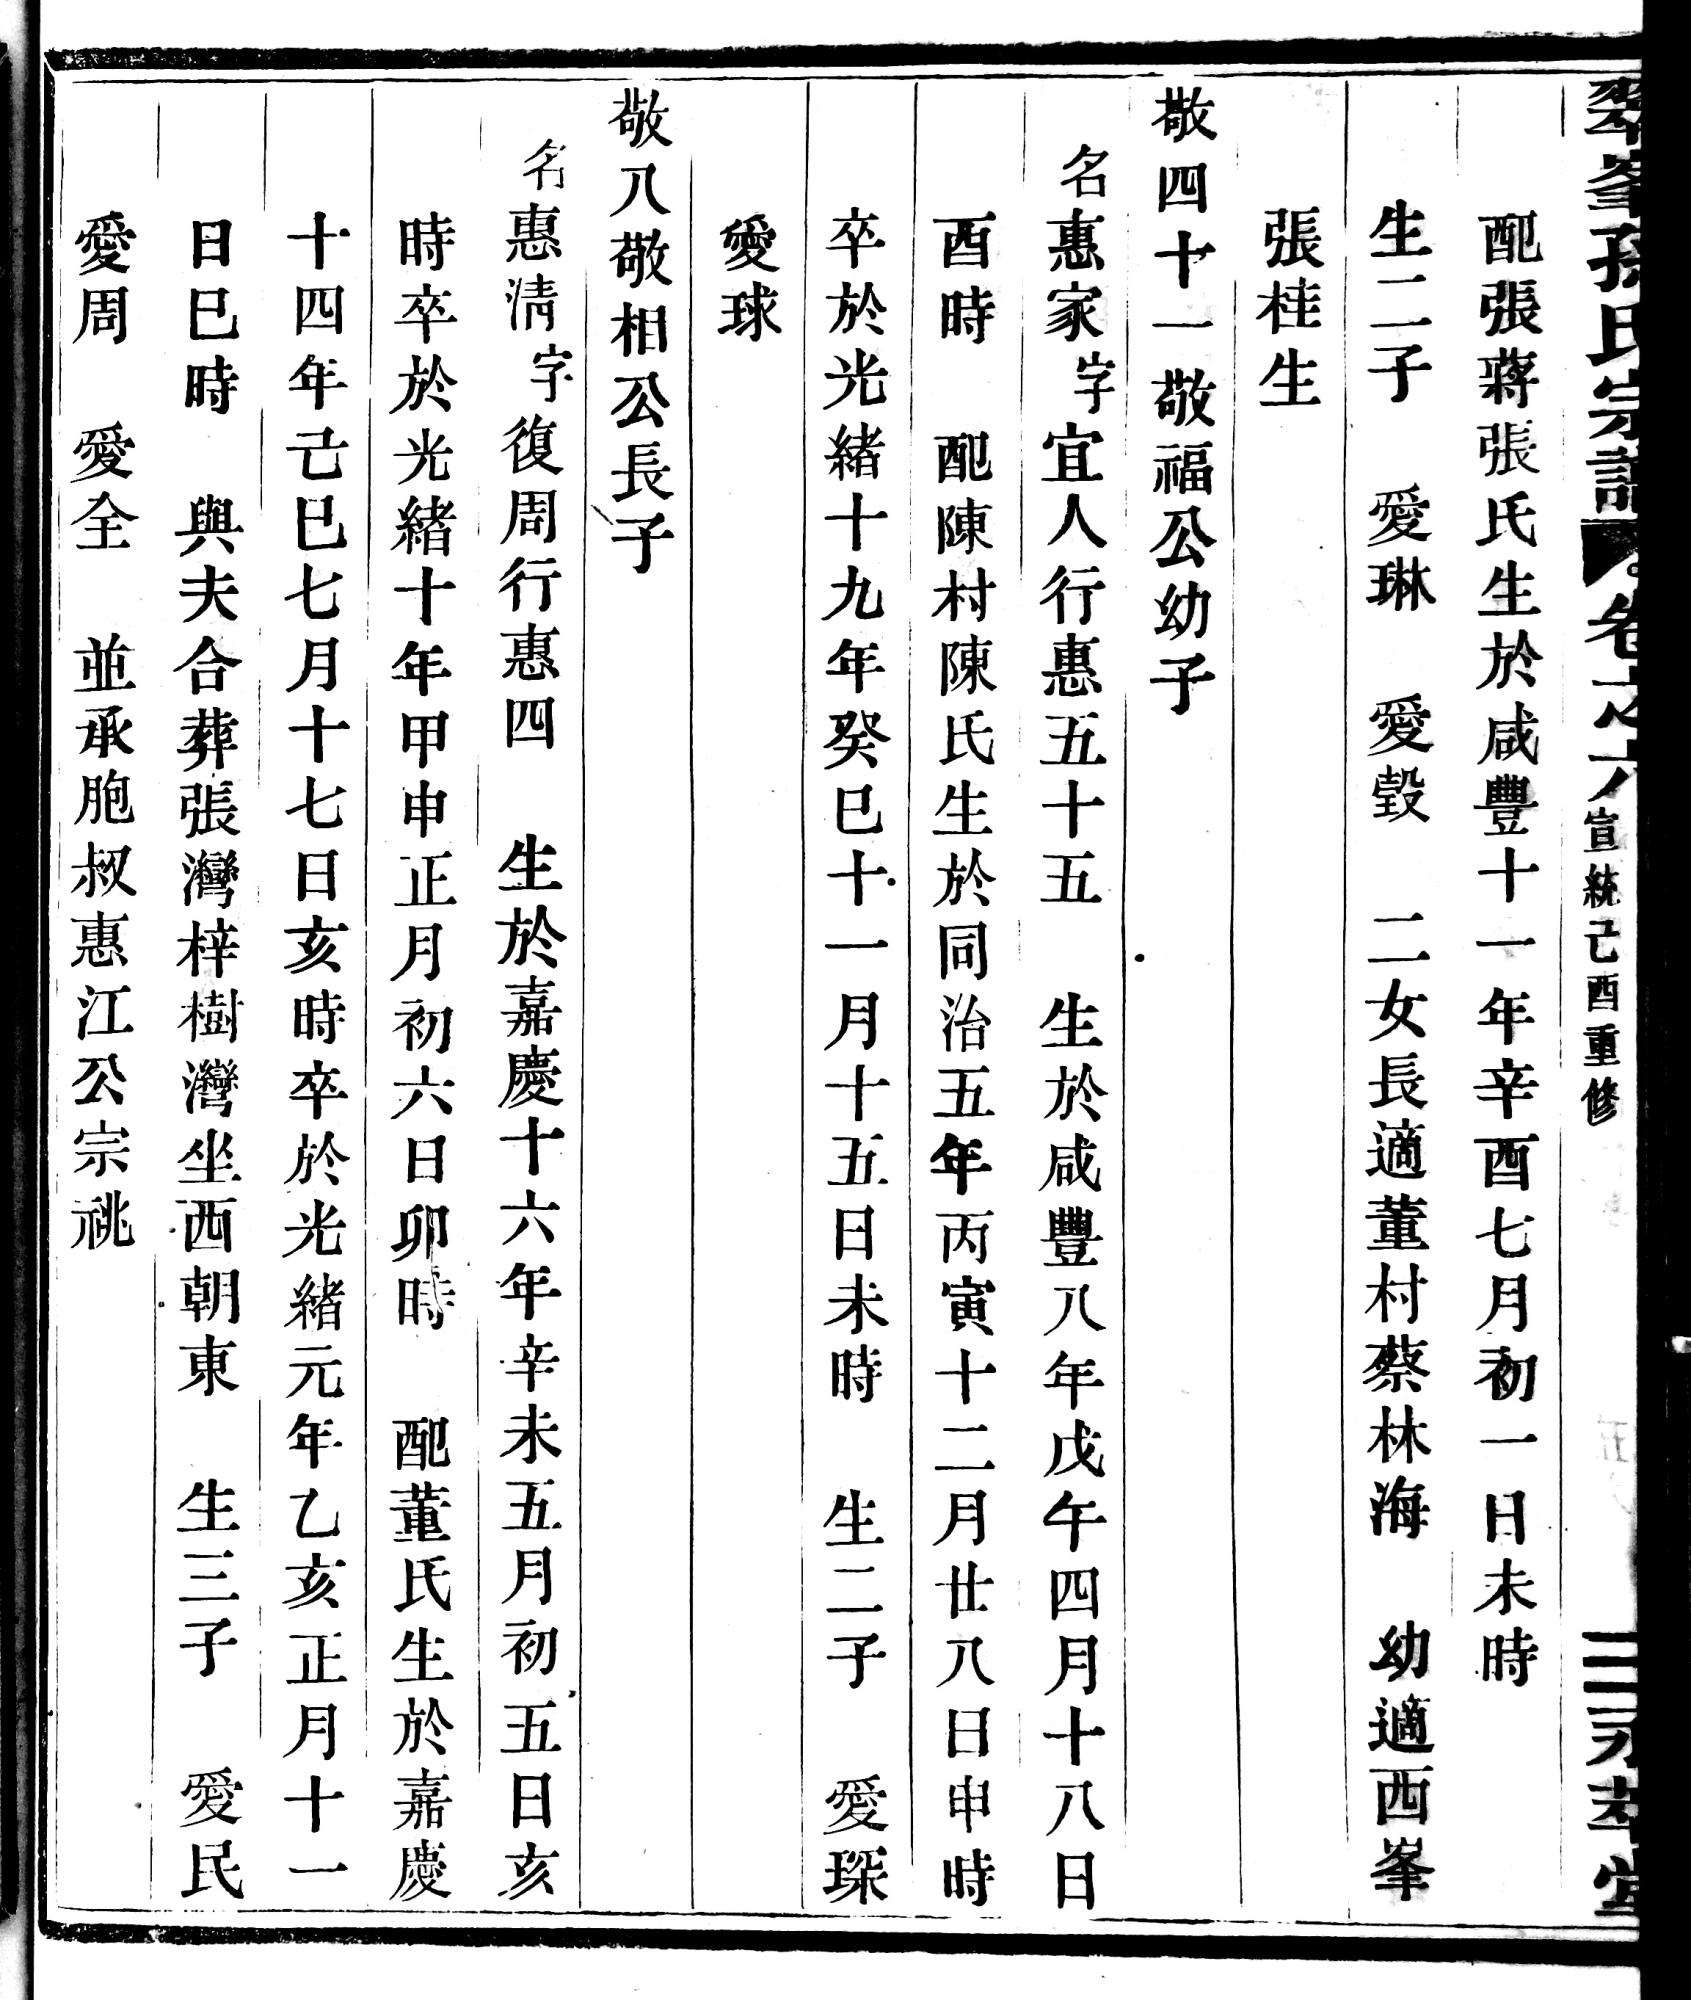 翠峯孫氏宗譜 卷之六 宣統己酉重修 永萃堂
配張蔣張氏生於咸豐十一年辛酉七月初一日未時
生二子 愛琳 愛瑴 二女長適董村蔡林海 幼適西峯
張桂生
敬四十一敬福公幼子
名惠家字宜人行惠五十五 生於咸豐八年戊午四月十八日
酉時 配陳村陳氏生於同治五年丙寅十二月廿八日申時
卒於光緒十九年癸巳十一月十五日未時 生二子 愛琛
愛球
敬八敬相公長子
名惠清字復周行惠四 生於嘉慶十六年辛未五月初五日亥
時卒於光緒十年甲申正月初六日卯時 配董氏生於嘉慶
十四年己巳七月十七日亥時卒於光緒元年乙亥正月十一
日巳時 與夫合葬張灣梓樹灣坐西朝東 生三子 愛民
愛周 愛全 並承胞叔惠江公宗祧